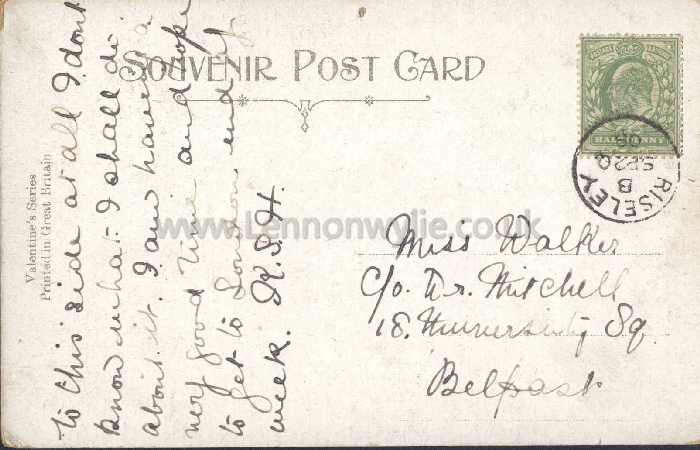 SOUVENIR POST CARD
Valentine's Series
Printed in Great Britain
to this side at all I dont
know what I shall do
about it. I am having a
very good time and hope
to get to London end of
week. R.S.H.
POSTAGE REVENUE
HALFPENNY
RISELEY
B
SP 20
Miss Walker
C/o. Dr. Mitchell
18. University Sq.
Belfast
www.Lennonwylie.co.uk